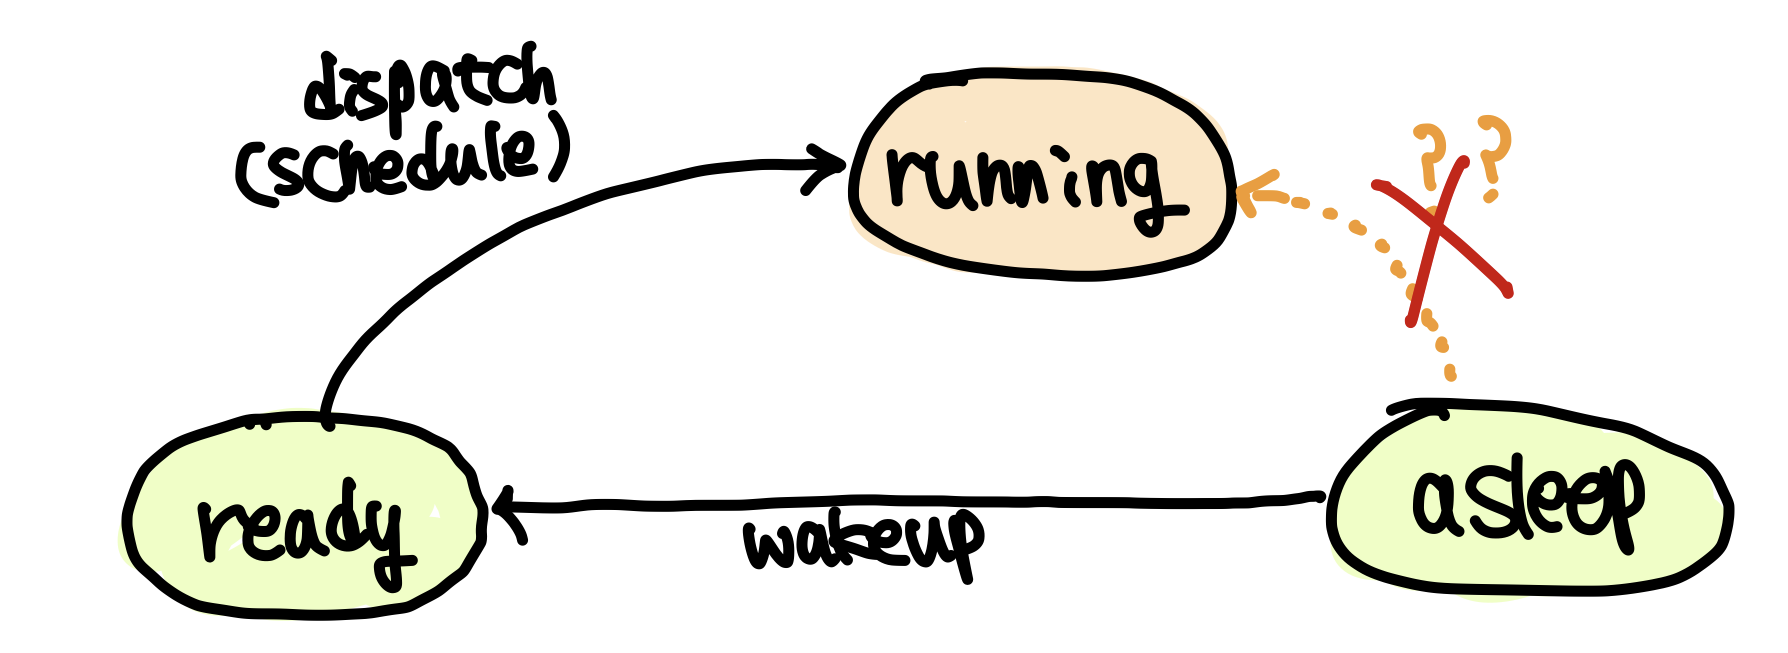 dispatch
(schedule)
running
? ?
ready
wakeup
asleep